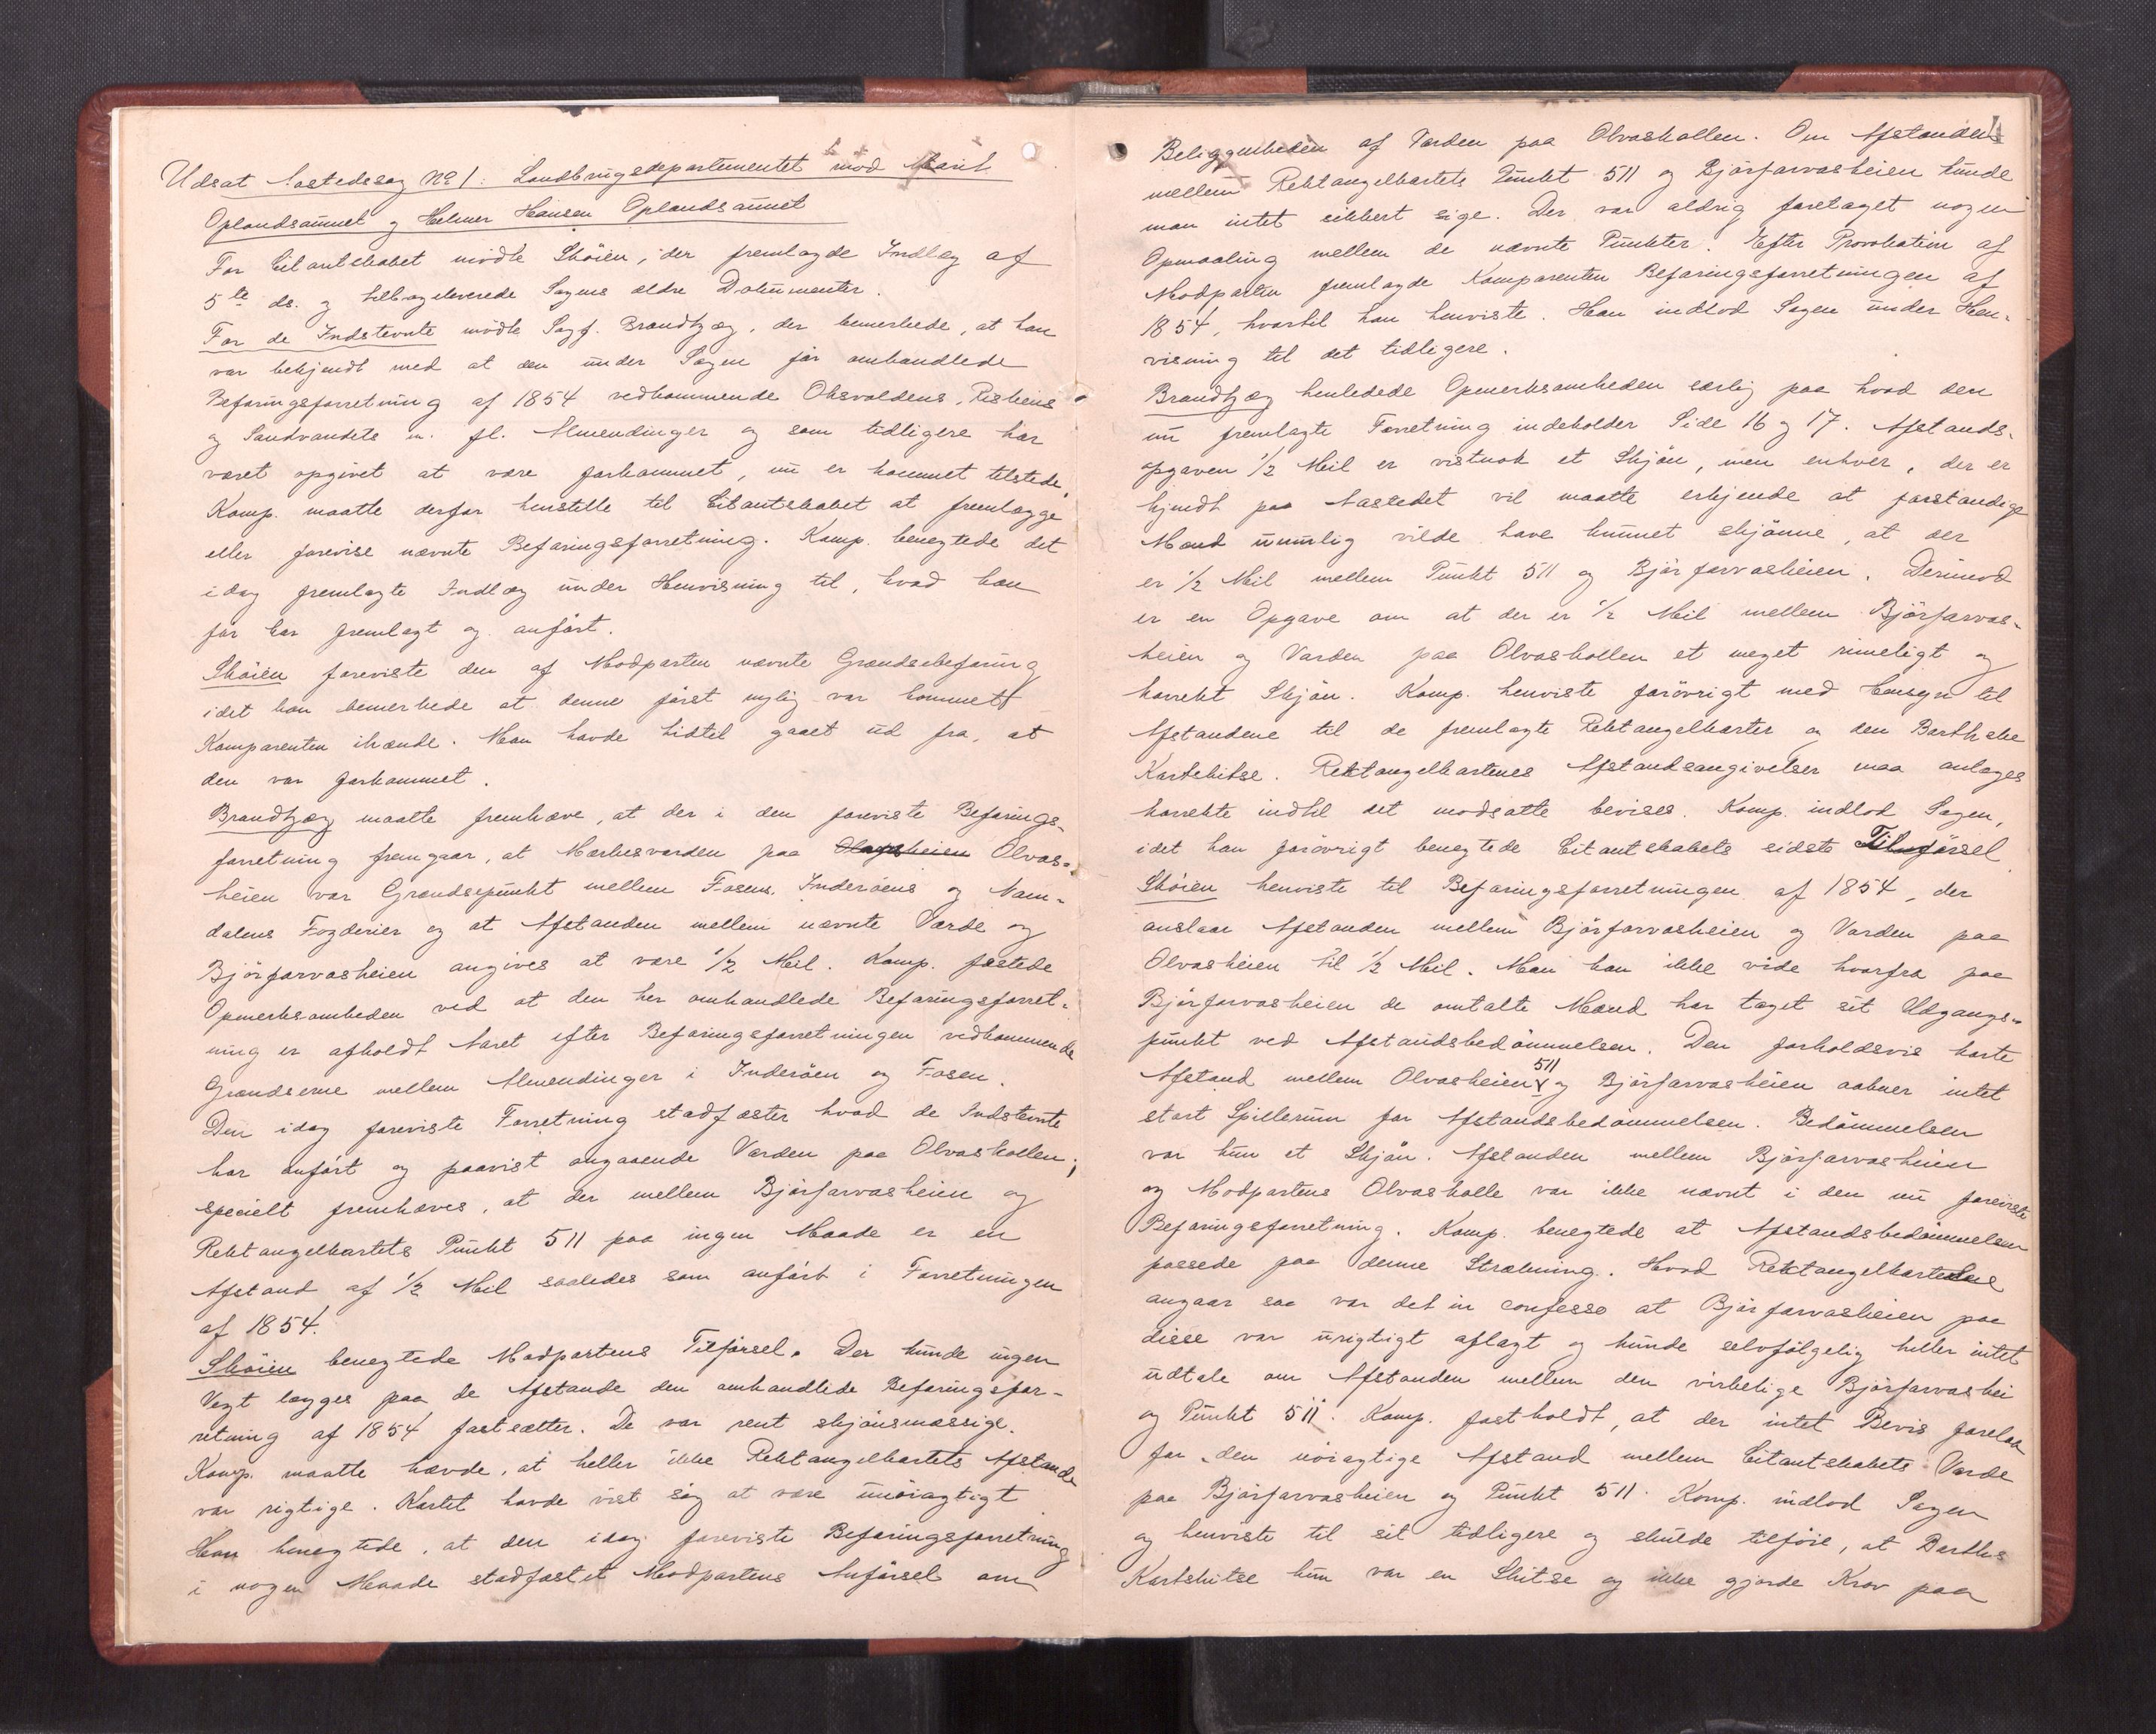 Udsat Aastedssag No 1: Landbrugsdepartementet mod Marit
Oplandsaunet og Helmer Hansen Oplandsaunet
For Citantskabet mödte Sköien, der fremlagde Indlæg af
5te ds. og tilbageleverede Sagens ældre Dokumenter.
For de Indstevnte mödte Sagf. Brandtzæg, der bemerkede, at han
var bekjendt med at den under Sagen för omhandlede
Befaringsforretning af 1854 vedkommende Oksvoldens, Rishens
og Sandvandets m. fl. Almendinger og som tidligere har
været opgivet at være forkommet, nu er kommet tilstede.
Komp. maatte derfor henstille til Citantskabet at fremlægge
eller forevise nævnte Befaringsforretning. Komp. benegtede det
idag fremlagte Indlæg under Henvisning til, hvad han
för har fremlagt og anfört.
Sköien foreviste den af Modparten nævnte Grændsebefaring
idet han bemerkede at denne först nylig var kommet
Komparenten ihænde. Man havde hidtil gaaet ud fra, at
den var forkommet.
Brandtzæg maatte fremhæve, at der i den foreviste Befarings-
forretning fremgaar, at Merkesvarden paa Olvas-
heien var Grændsepunkt mellem Fosens, Inderöens og Nam-
dalens Fogderier og at Afstanden mellem nævnte Varde og
Björfarvasheien angives at være 1/2 Mil. Komp. fæstede
Opmerksomheden ved at den her omhandlede Befaringsforret-
ning er afholdt Aaret efter Befaringsforretningen vedkommende
Grændserne mellem Almendinger i Inderöen og Fosen.
Den idag foreviste Forretning stadfæster hvad de Indstevnte
har anfört og paavist angaaende Varden paa Olvaskollen;
specielt fremhæves, at der mellem Björfarvasheien og
Rektangelkartets Punkt 511 paa ingen Maade er en
Afstand af 1/2 Mil saaledes som anfört i Forretningen
af 1854.
Sköien benegtede Modpartens Tilförsel. Der kunde ingen
Vegt lægges paa de Afstande den omhandlede Befaringsfor-
retning af 1854 fastsætter. De var rent skjönsmæssige.
Komp. maatte hævde, at heller ikke Rektangelkartets Afstande
var rigtige. Kartet havde vist sig at være unöiagtigt.
Han benegtede, at den idag foreviste Befaringsforretning
i nogen Maade stadfæstet Modpartens Anförsel om
Beliggenheden af Varden paa Olvaskollen. Om Afstanden
mellem Rektangelkartets Punkt 511 og Björfarvasheien kunde
man intet sikkert sige. Der var aldrig foretaget nogen
Opmaaling mellem de nævnte Punkter. Efter Provokation af
Modparten fremlagde Komparenten Befaringsforretningen af
1854, hvortil han henviste. Han indlod Sagen under Hen-
visning til det tidligere.
Brandtzæg henledede Opmerksomheden særlig paa hvad den
nu fremlagte Forretning indeholder Side 16 og 17. Afstands-
opgaven 1/2 Mil er vistnok et Skjön, men enhver, der er
kjendt paa Aastedet vil maatte erkjende at forstandige
Mænd umulig vilde have kunnet skjönne, at der
er 1/2 Mil mellem Punkt 511 og Björfarvasheien. Derimod
er en Opgave om at der er 1/2 Mil mellem Björfarvas-
heien og Varden paa Olvaskollen et meget rimeligt og
korrekt Skjön. Komp. henviste forövrigt med Hensyn til
Afstandene til de fremlagte Rektangelkarter og den Barthske
Kartskitse. Rektangelkartenes Afstandsangivelser maa antages
korrekte indtil det modsatte bevises. Komp. indlod Sagen,
idet han forövrigt benegtede Citantskabets sidste Tilförsel
Sköien henviste til Befaringsforretningen af 1854, der
anslaar Afstanden mellem Björfarvasheien og Varden paa
Olvasheien til 1/2 Mil. Man kan ikke vide hvorfra paa
Björfarvasheien de omtalte Mænd har taget sit Udgangs-
punkt ved Afstandsbedömmelsen. Den forholdsvis korte
Afstand mellem Olvasheien 511 og Björfarvasheien aabner intet
stort Spillerum for Afstandsbedömmelsen. Bedömmelsen
var kun et Skjön. Afstanden mellem Björfarvasheien
og Modpartens Olvaskolle var ikke nævnt i den nu foreviste
Befaringsforretning. Komp. benegtede at Afstandsbedömmelsen
passede paa denne Strækning. Hvad Rektangelkartene
angaar saa var det in confesso at Björfarvasheien paa
disse var urigtigt aflagt og kunde selvfölgelig heller intet
udtale om Afstanden mellem den virkelige Björfarvashei
og Punkt 511. Komp. fastholdt, at der intet Bevis forelaa
for den nöiagtige Afstand mellem Citantskabets Varde
paa Björfarvasheien og Punkt 511. Komp. indlod Sagen
og henviste til sit tidligere og skulde tilföie, at Barths
Kartskitse kun var en Skitse og ikke gjorde Krav paa